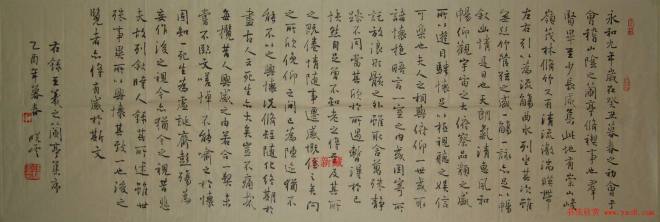 永和九年歲在癸丑暮春之初會于
會稽山陰之蘭亭脩禊事也群
賢畢至少長咸集此地有崇山峻
嶺茂林脩竹又有清流激湍映帶
左右引以為流觴曲水列坐其次雖
無絲竹管弦之盛一觴一詠亦足以暢
敘幽情是日也天朗氣清惠風和
暢仰觀宇宙之大俯察品類之盛
所以遊目騁懷足以極視聽之娛信
可樂也夫人之相與俯仰一世或取
諸懷抱晤言一室之內或因寄所
託放浪形骸之外雖取舍萬殊靜
躁不同當其欣於所遇暫得於己
快然自足曾不知老之將至及其所
之既倦情隨事遷感慨係之矣向
之所欣俯仰之間已為陳迹猶不
能不以之興懷況脩短隨化終期於
盡古人云死生亦大矣豈不痛哉
每攬昔人興感之由若合一契未
嘗不臨文嗟悼不能喻之於懷
固知一死生為虛誕齊彭殤為
妄作後之視今亦猶今之視昔悲
夫故列敘時人錄其所述雖世
殊事異所以興懷其致一也後之
覽者亦將有感於斯文
右錄王羲之蘭亭集序
乙酉年暮春